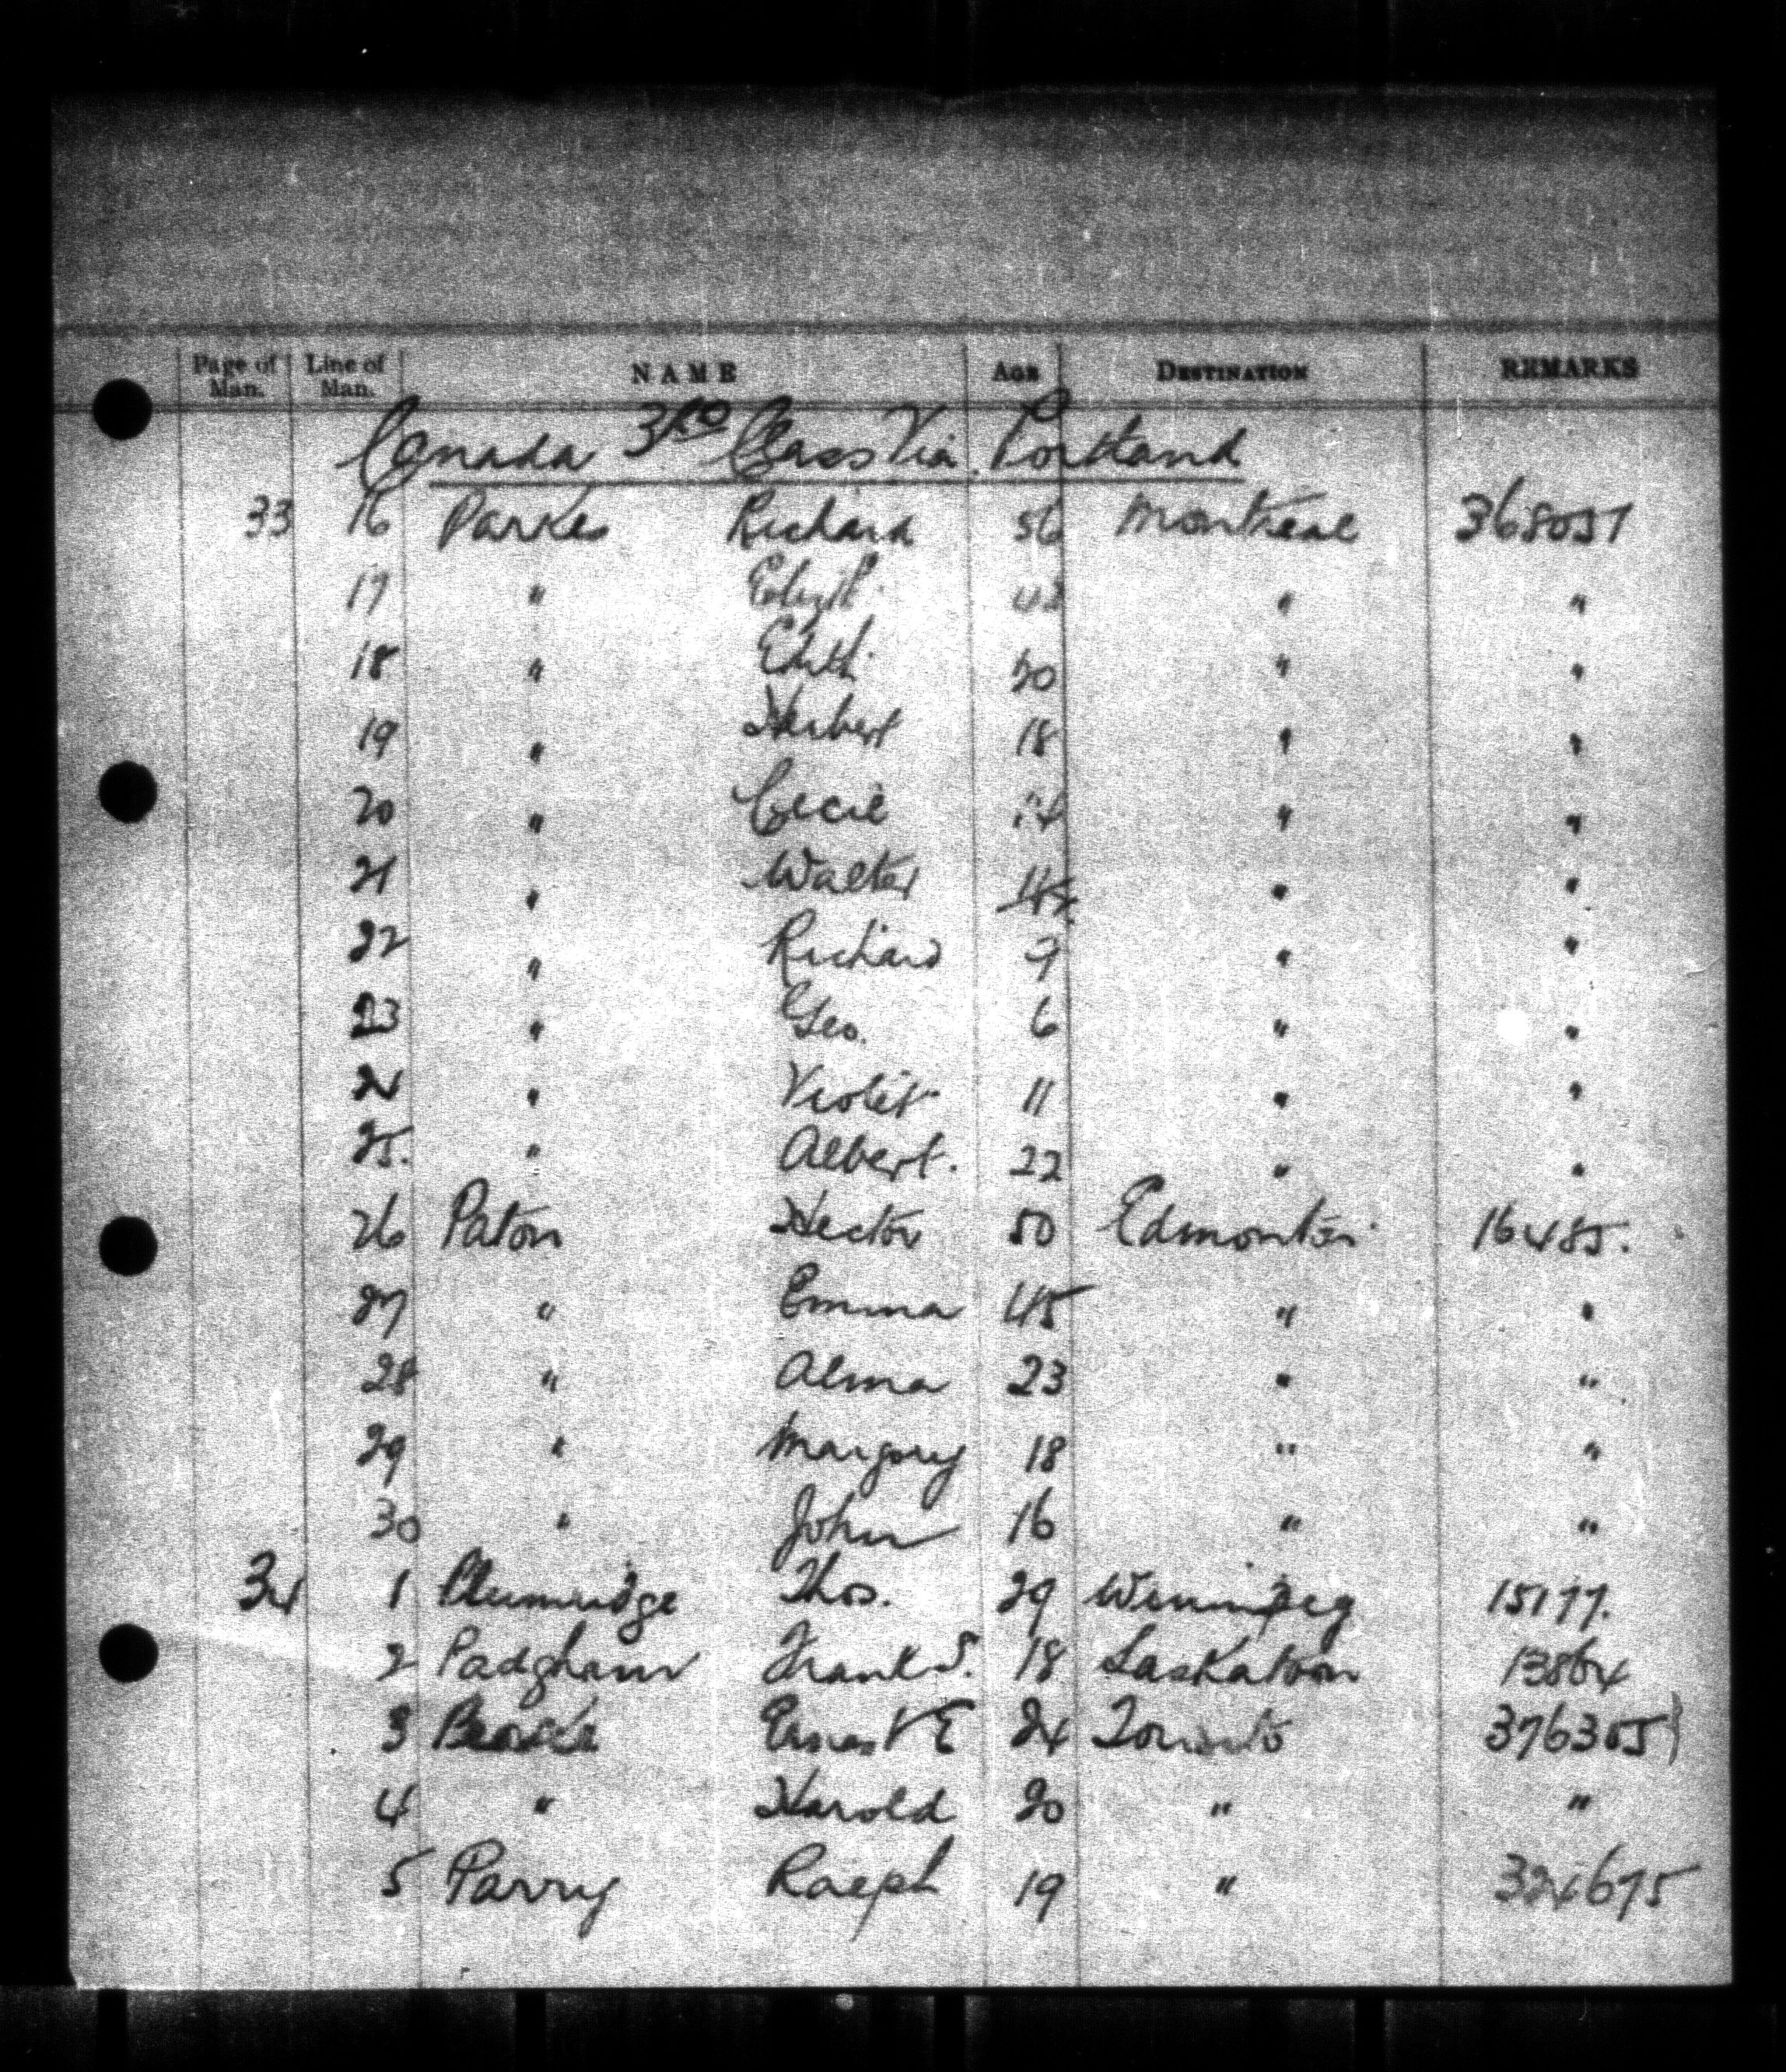 Page of Man. Line of Man. NAME AGE DESTINATION REMARKS
Canada 3RD Class Via Portland
33 16 Parkes Richard 56 Montreal 368051
17 " Elizth 42 " "
18 " Edith 20 " "
19 " Herbert 18 " "
20 " Cecil 14 " "
21 " Walter " "
22 " Richard 9 " "
23 " Geo. 6 " "
24 " Violet 11 " "
25. " Albert. 22 " "
26 Paton Hector 50 Edmonton 16485.
27 " Emma 45 " "
28 " Alma 23 " "
29 " Margory 18 " "
30 " John 16 " "
34 1 Plumridge Thos. 29 Winnipeg 15177.
2 Padgham Frank S. 18 Saskatoon 13864
3 Ernest E 24 Toronto 376305}
4 " Harold 20 " "
5 Parry Ralph 19 " 324675